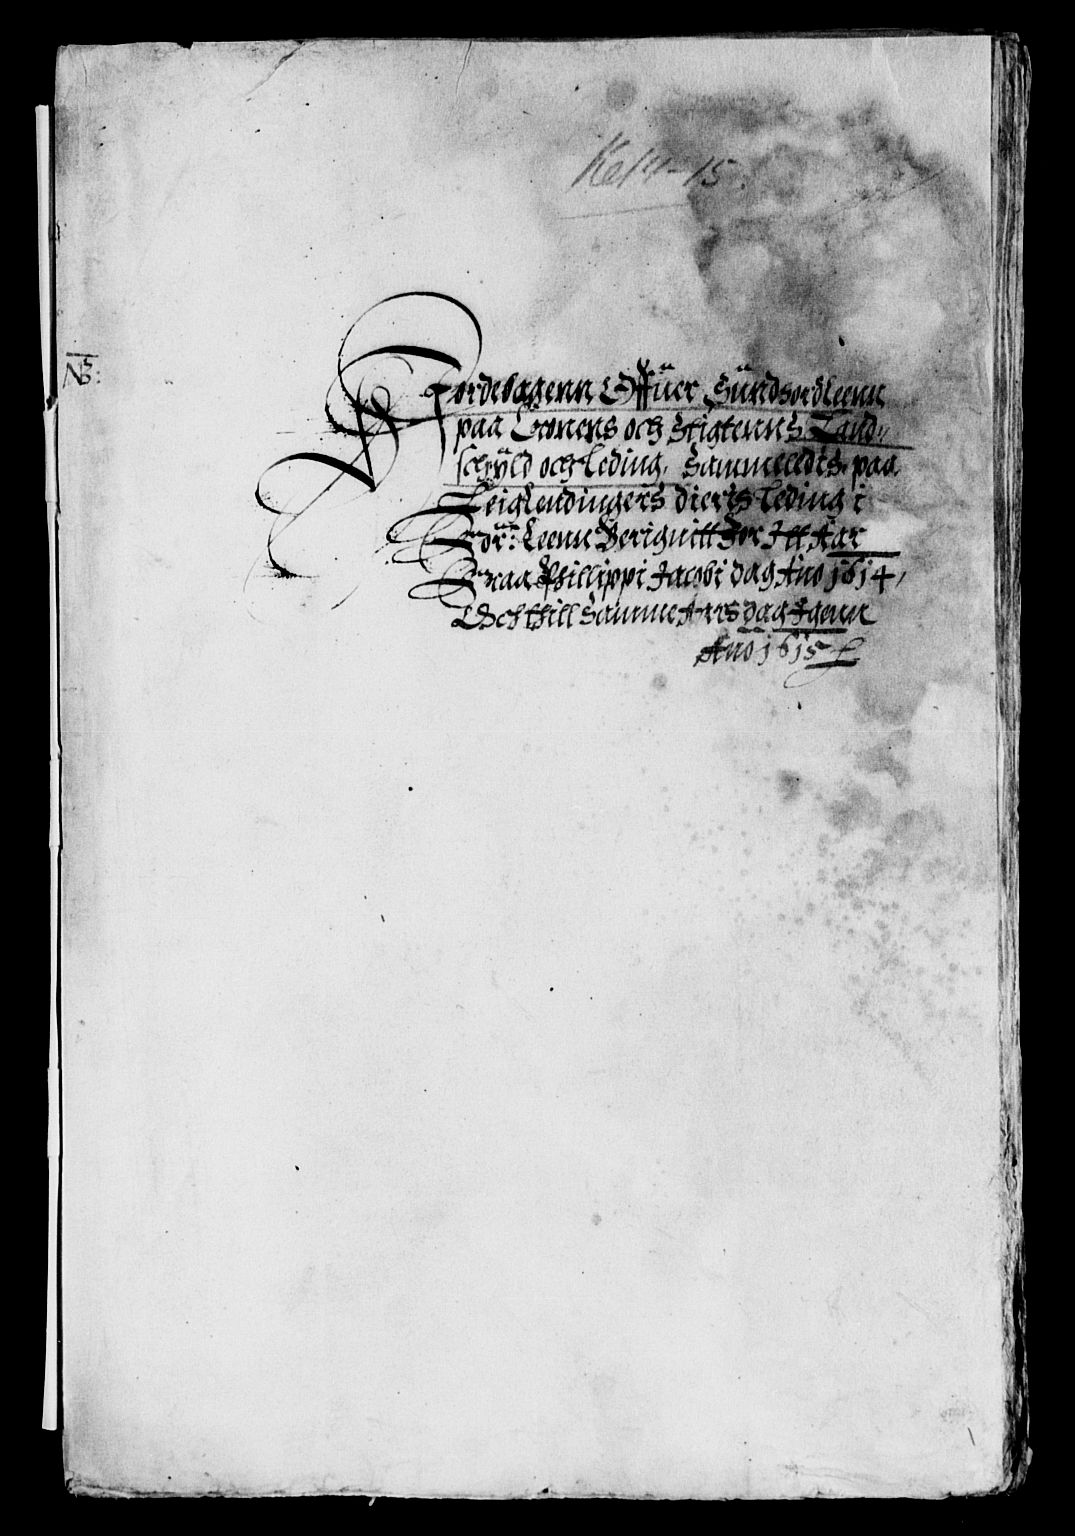 1614-15.
NB:
Jordebogenn Offuer Sundhordleenn
paa Cronens och Stigtenns Land-
schyld och leding, Sammeledis paa
Leiglendingers dieris leding i
bdr: Leenn Berignitt For Itt Aar
Fraa Phillippi Jacobi dag Ano 1614,
Och thill Samme Aars dag Igenn
Ano 1615